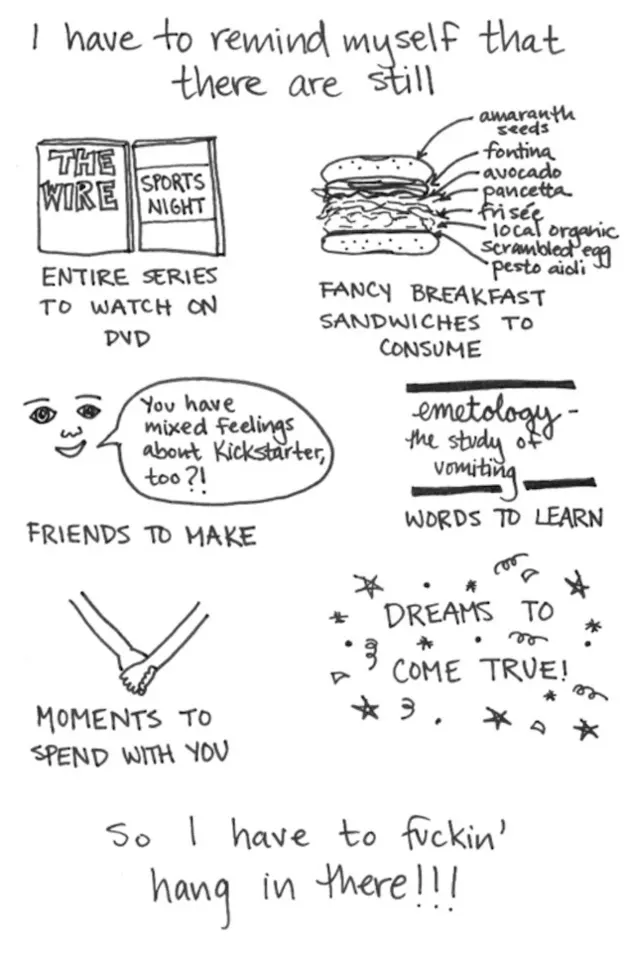 I have to remind myself that
there are still
THE
WIRE
SPORTS
NIGHT
ENTIRE SERIES
TO WATCH ON
DVD
amaranth
seeds
fontina
avocado
pancetta
frisée
local organic
scrambled egg
pesto aioli
FANCY BREAKFAST
SANDWICHES TO
CONSUME
You have
mixed feelings
about Kickstarter,
too?!
FRIENDS TO MAKE
emetology -
the study of
vomiting
WORDS TO LEARN
MOMENTS TO
SPEND WITH YOU
DREAMS TO
COME TRUE!
So I have to fuckin'
hang in there!!!